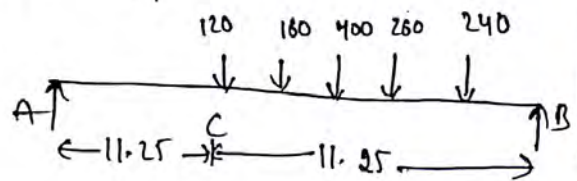 120 160 400 260 240
A B
C
11.25 11.25